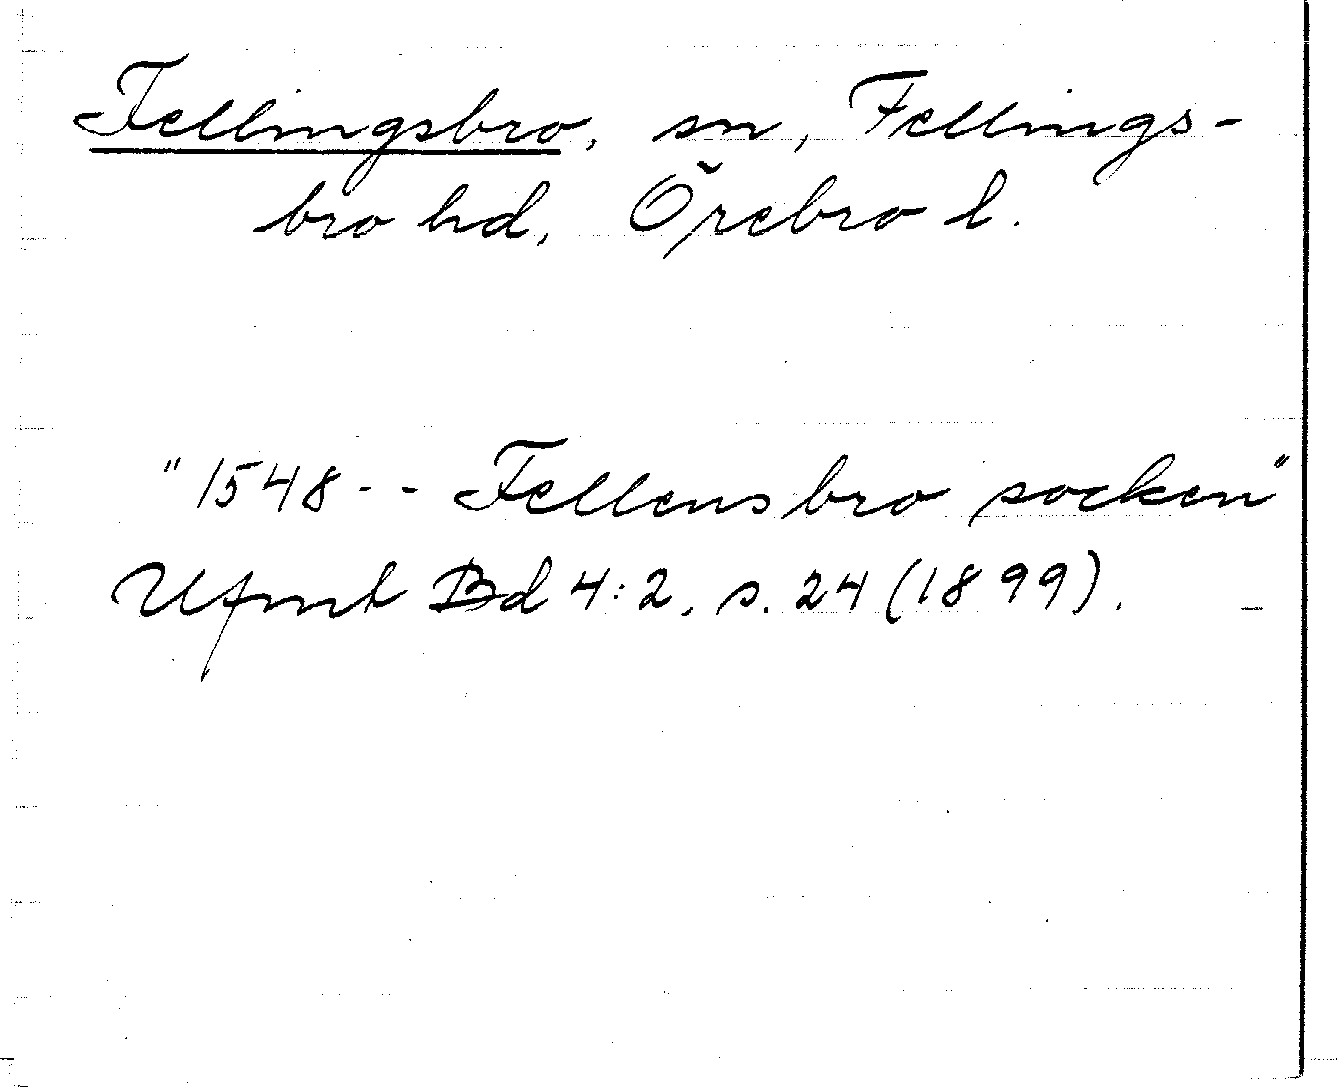 Fellingsbro, sn, Fellings-
bro hd, Örebro l.
"1548 - - Fellensbro socken"
Ufmt Bd 4:2, s. 24 (1899).